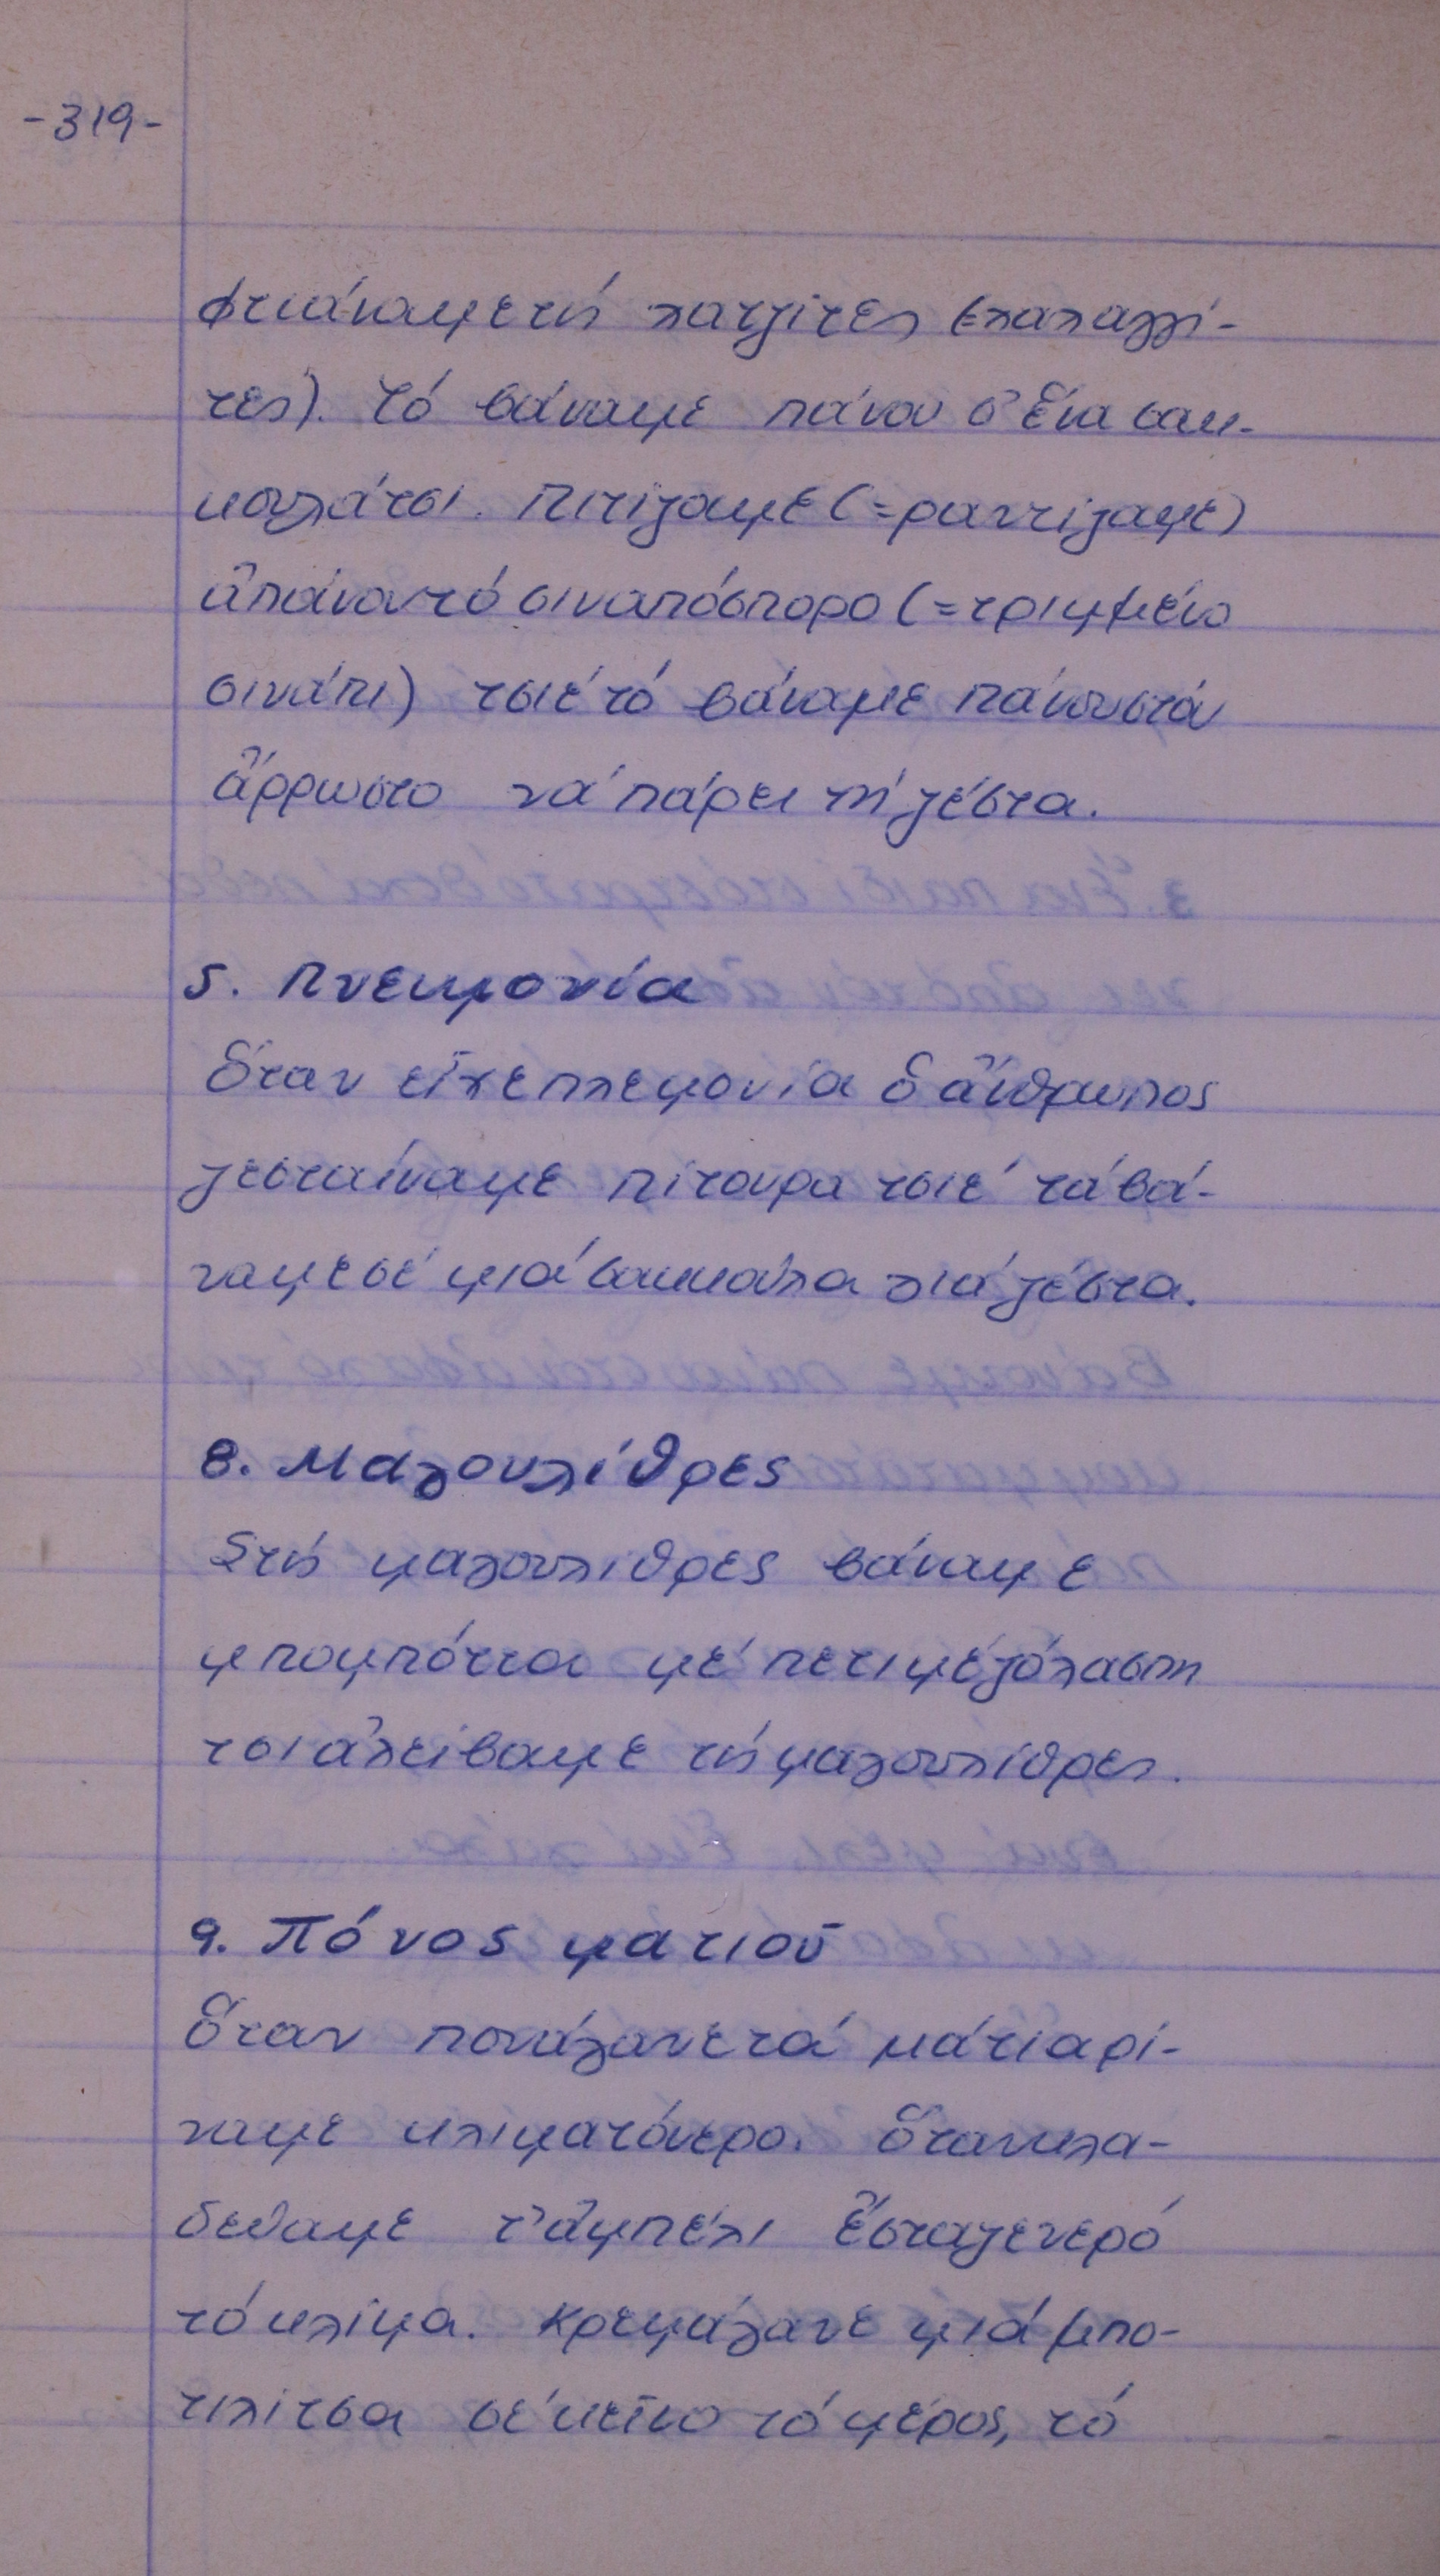 -319-
φτιάναμε τὶς λατζίτες (=λαλαγγί-
τες). Τό βάναμε πάνου σ' ἕνα σακ-
κουλάτσι. Πιτίζαμε (=ραντίζαμε)
ἀπάνου τό σιναπόσπορο (=τριμμένο
σινάπι) τσιέ τό βάναμε πάνου στόν
ἄρρωστο νά πάρει τή ζέστα.
5. Πνευμονία
Ὅταν εἶχε πλεμονία ὁ ἄνθρωπος
ζεσταίναμε πίτουρα τσιέ τά βά-
ναμε σέ μιά σακκούλα γιά ζέστα.
8. Μαγουλίθρες
Στίς μαγουλίθρες βάναμε
μπομπότα μέ πετιμέζόλασπη
τσι ἀλείβαμε τίς μαγουλίθρες.
9. Πόνος ματιοῦ
Ὅταν πονάγανε τά μάτια ρί-
ναμε κλιματόνερο. Ὅταν κλα-
δεύαμε τ' ἀμπέλι ἔσταζε νερό
τό κλίμα. Κρεμάγανε μιά μπο-
τιλίτσα σέ κεῖνο τό μέρος, τό